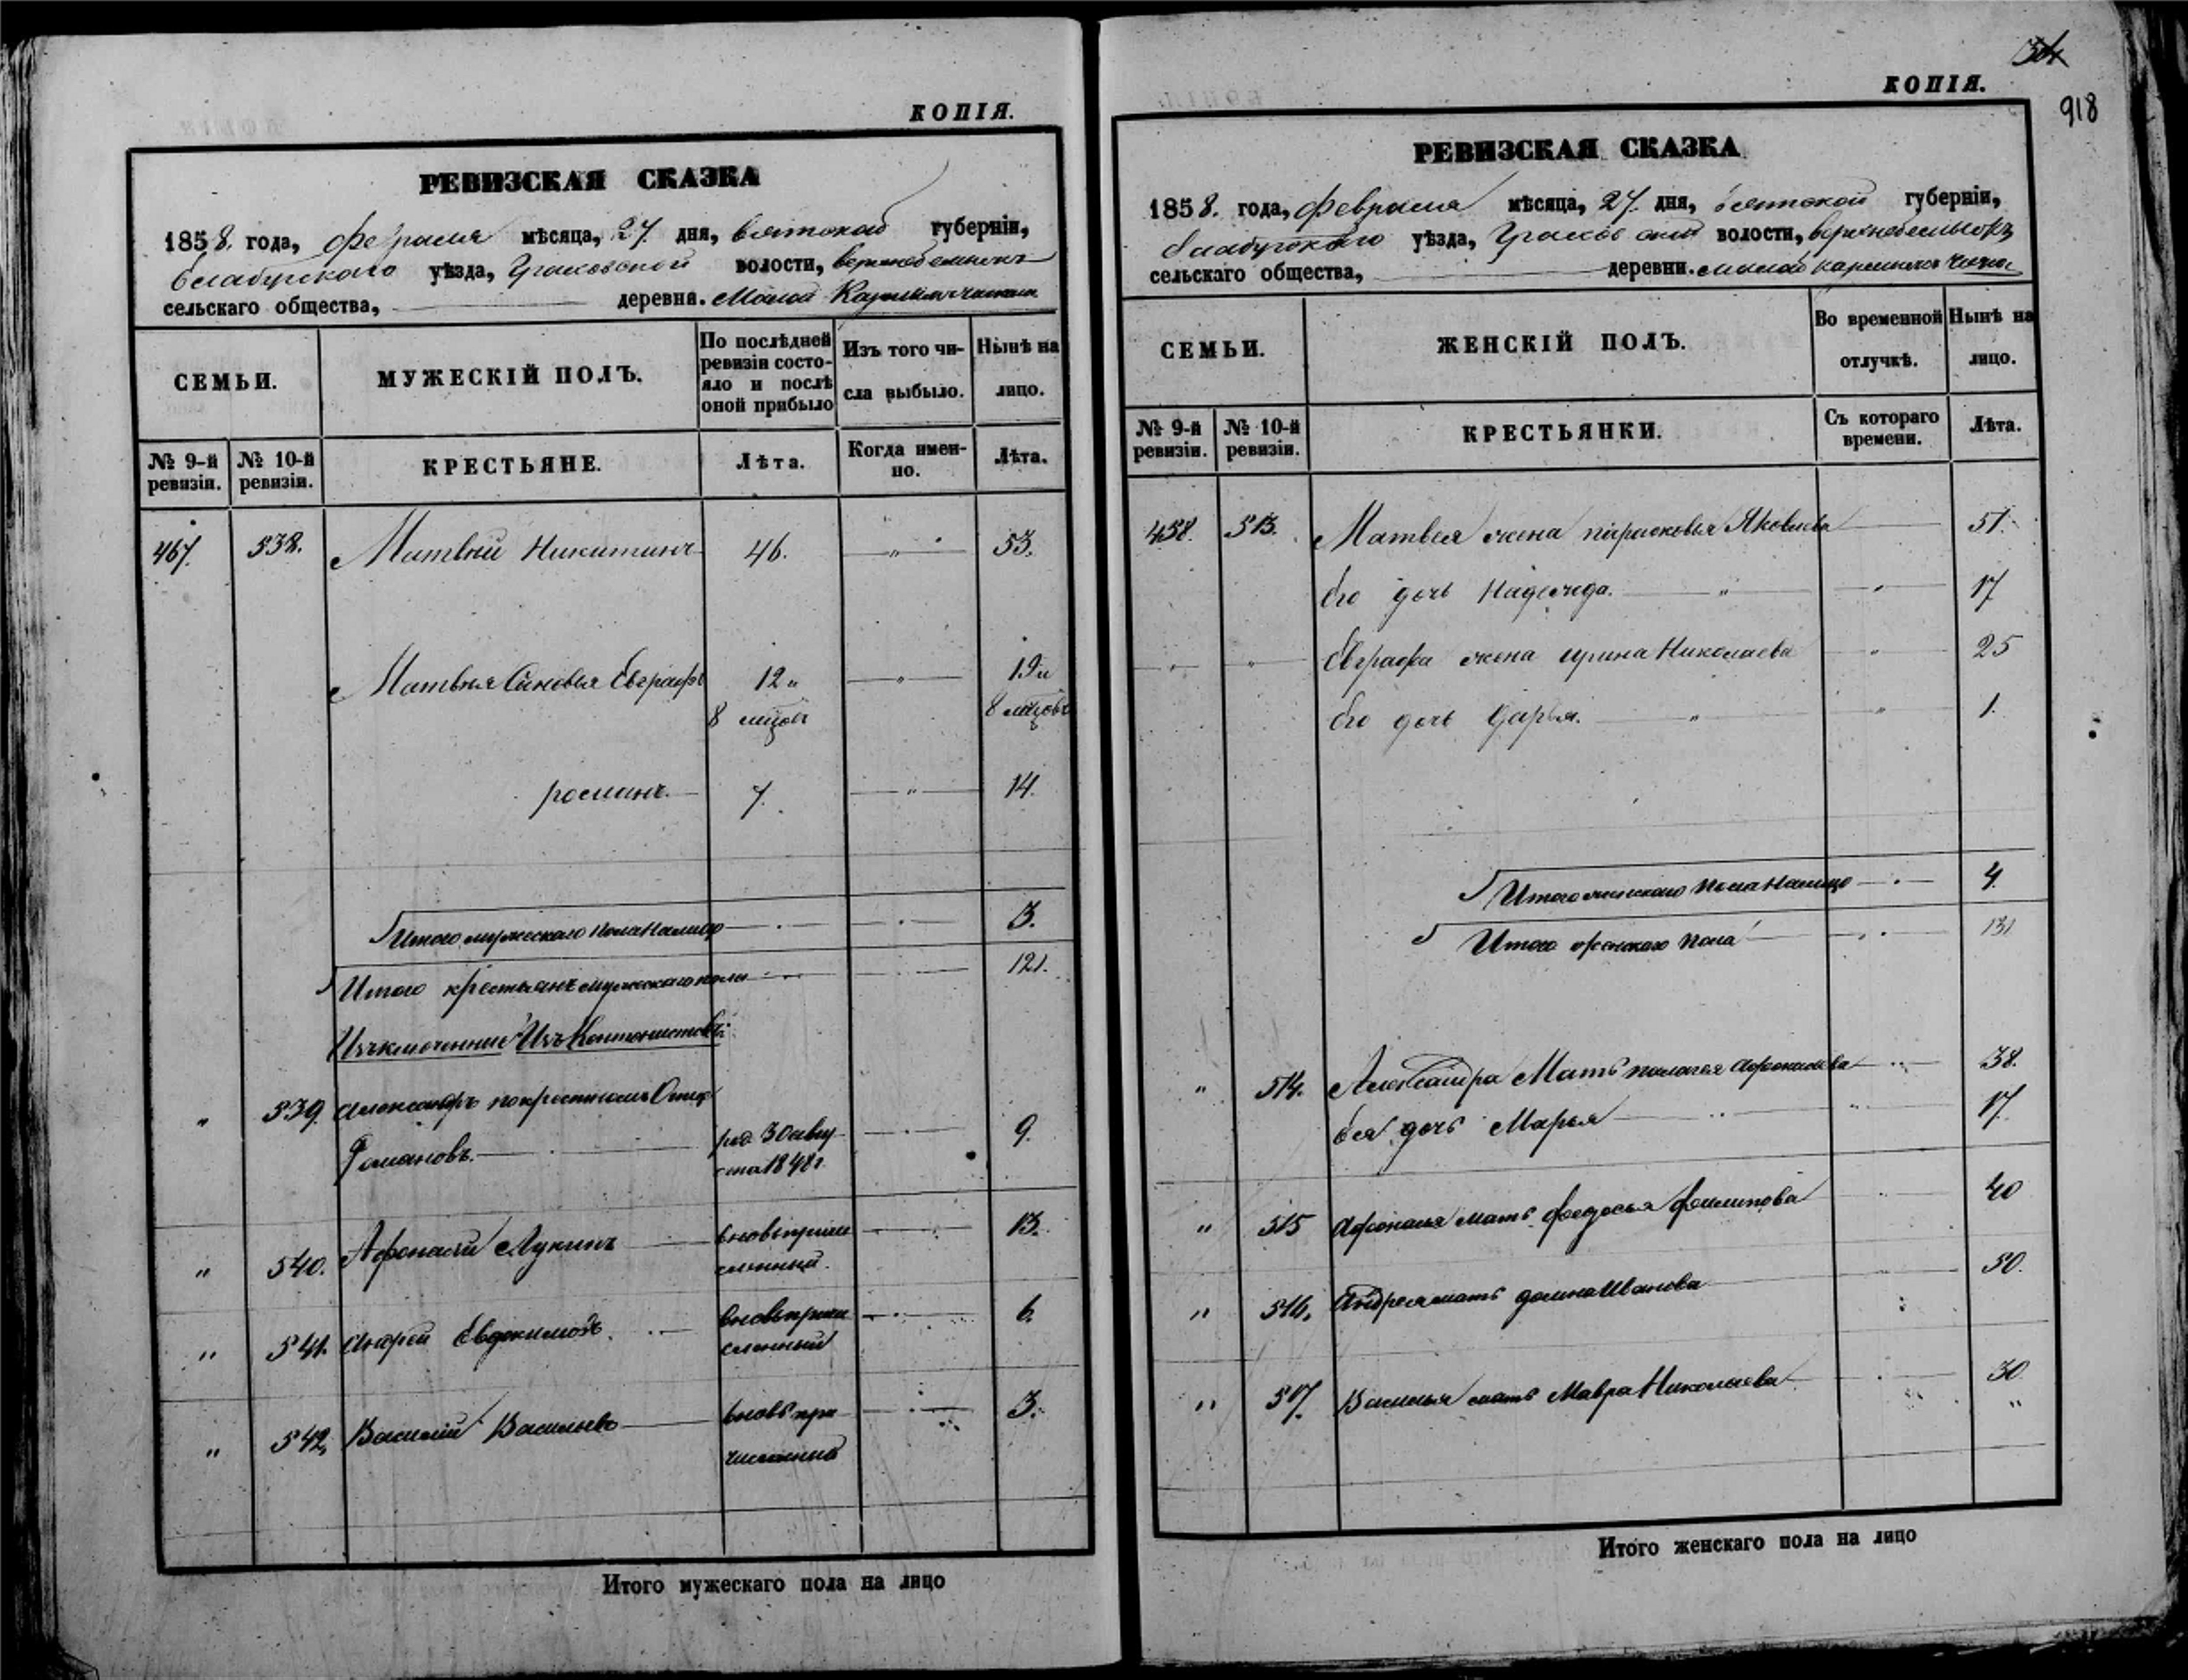 КОПІЯ.
РЕВИЗСКАЯ СКАЗКА
1858. года, февраля мѣсяца, 27. дня, вятской губерніи,
елабугскаго уѣзда, волости,
сельскаго общества, деревни. Малой
СЕМЬИ.
МУЖЕСКІЙ ПОЛЪ.
По послѣдней
ревизіи состо-
яло и послѣ
оной прибыло
Изъ того чи-
сла выбыло.
Нынѣ на
лицо.
№ 9-й
ревизіи.
№ 10-й
ревизіи.
КРЕСТЬЯНЕ.
Лѣта.
Когда имен-
но.
Лѣта.
467. 538. Матвѣй Никитинъ 46. — „ — 53.
Матвѣя Сыновья Евграфъ 12 „ — „ — 19 „
8 мцовъ 8 мцовъ
романъ 7. — „ — 14.
Итого мужескаго пола налицо 3.
Итого крестьянъ мужескаго пола 121.
Изъключенные Изъ Кантонистовъ:
„ 539. Александръ покрестномъ Отцѣ
Романовъ. род. 30 авгу 9.
ста 1848 г.
„ 540. Афонасий Лукинъ вновь причи 13.
сленный.
„ 541. Андрей Евдокимовъ. вновь причи 6.
сленный
„ 542. Василий Васильевъ вновь при 3.
численный
Итого мужескаго пола на лицо
34
918
КОПІЯ.
РЕВИЗСКАЯ СКАЗКА
1858. года, февраля мѣсяца, 27. дня, вятской губерніи,
елабугскаго уѣзда, волости,
сельскаго общества, деревни. малой
СЕМЬИ.
ЖЕНСКІЙ ПОЛЪ.
Во временной
отлучкѣ.
Нынѣ на
лицо.
№ 9-й
ревизіи.
№ 10-й
ревизіи.
КРЕСТЬЯНКИ.
Съ котораго
времени.
Лѣта.
458. 513. Матвея жена парасковья Яковлева 51.
Его дочь Надежда. — „ — „ — 17
— „ — „ — Евграфа жена ирина Николаева — „ — 25
Его дочь Дарья. — „ — „ — 1.
Итого женскаго пола налицо 4.
Итого женскаго пола 131
„ 514. Александра Мать палагея Афонасьева 38.
Ея дочь Марья 17.
„ 515 Афонасья мать федосья филипова 40
„ 516. Андрея мать домна Иванова 50.
„ 517. Василья мать Мавра Николаева 30
„
Итого женскаго пола на лицо